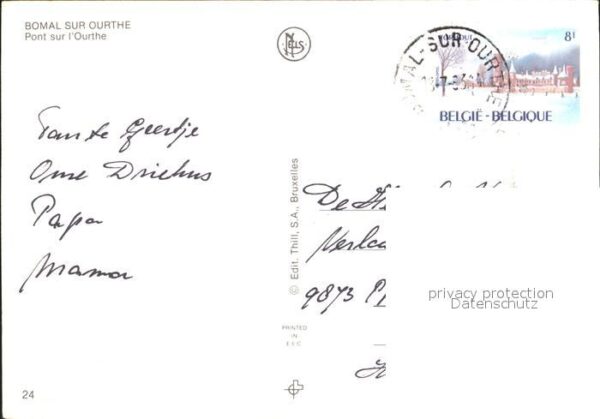 BOMAL SUR OURTHE
Pont sur l'Ourthe
NELS
8f
BOMAL-SUR-OURTHE
BELGIË - BELGIQUE
Tante Geertje
Ome Driekus
Papa
Mama
© Edit. Thill, S.A., Bruxelles
De
9873
privacy protection
Datenschutz
PRINTED
IN
E.E.C.
24